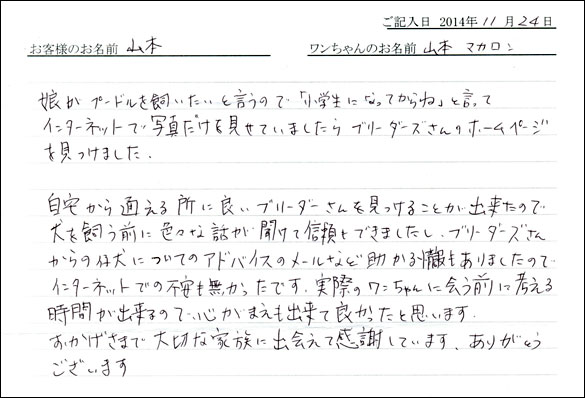 ご記入日 2014年11月24日
お客様のお名前 山本 ワンちゃんのお名前 山本 マカロン
娘が プードルを飼いたいと言うので「小学生になってからね」と言って
インターネットで写真だけを見せていましたら ブリーダーズさんのホームページ
を見つけました.
自宅から通える所に良いブリーダーさんを見つけることが出来たので
犬を飼う前に色々な話が聞けて信頼もできましたし、ブリーダーズさん
からの仔犬についてのアドバイスのメールなど助かる情報もありましたので
インターネットでの不安も無かったです. 実際のワンちゃんに会う前に考える
時間が出来るので心がまえも出来て良かったと思います.
おかげさまで大切な家族に出会えて感謝しています. ありがとう
ございます